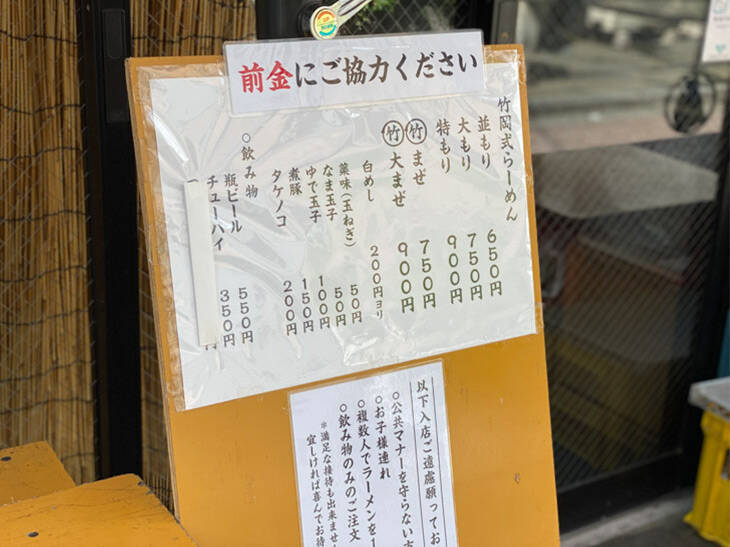 前金にご協力ください
竹岡式らーめん
並もり 650円
大もり 750円
特もり 900円
竹まぜ 750円
竹大まぜ 900円
白めし 200円ヨリ
薬味(玉ねぎ) 50円
なま玉子 50円
ゆで玉子 100円
煮豚 150円
タケノコ 200円
○飲み物
瓶ビール 550円
チューハイ 350円
以下入店ご遠慮願ってお
○公共マナーを守らない方
○お子様連れ
○複数人でラーメンを1
○飲み物のみのご注文
*満足な接待も出来ません
宜しければ喜んでお待